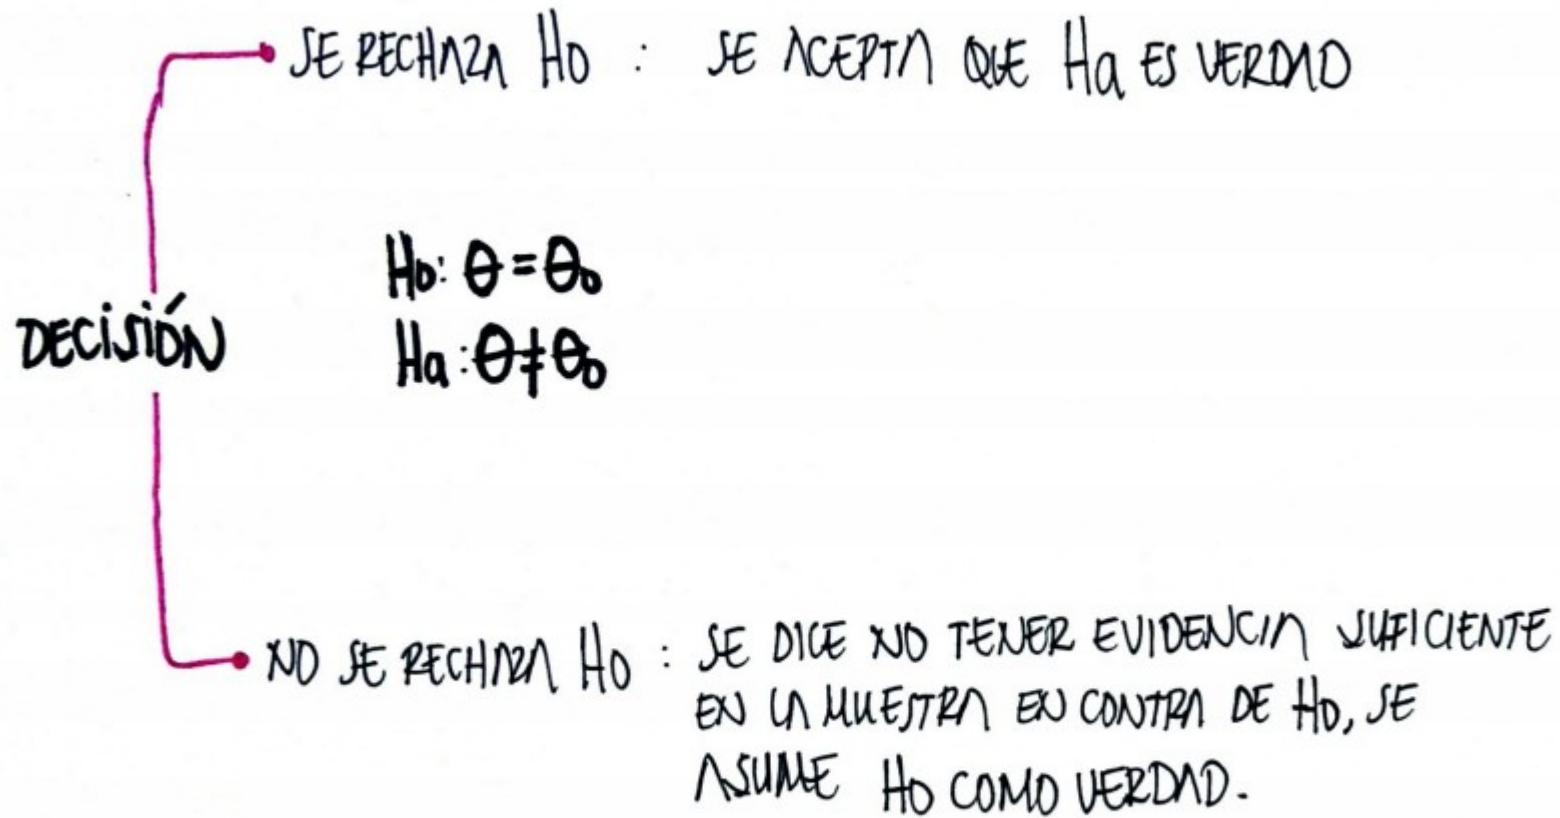 SE RECHAZA Ho : SE ACEPTA QUE Ha ES VERDAD
Ho: θ = θ₀
Ha: θ ≠ θ₀
DECISIÓN
NO SE RECHAZA Ho : SE DICE NO TENER EVIDENCIA SUFICIENTE
EN LA MUESTRA EN CONTRA DE Ho, SE
ASUME Ho COMO VERDAD.